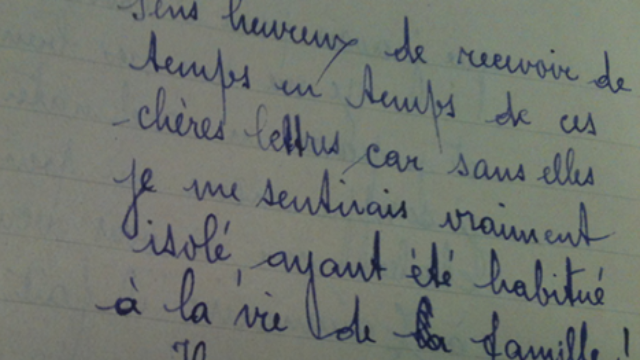 sens heureux de recevoir de
temps en temps de ces
chères lettres car sans elles
je me sentirais vraiment
isolé, ayant été habitué
à la vie de la famille !